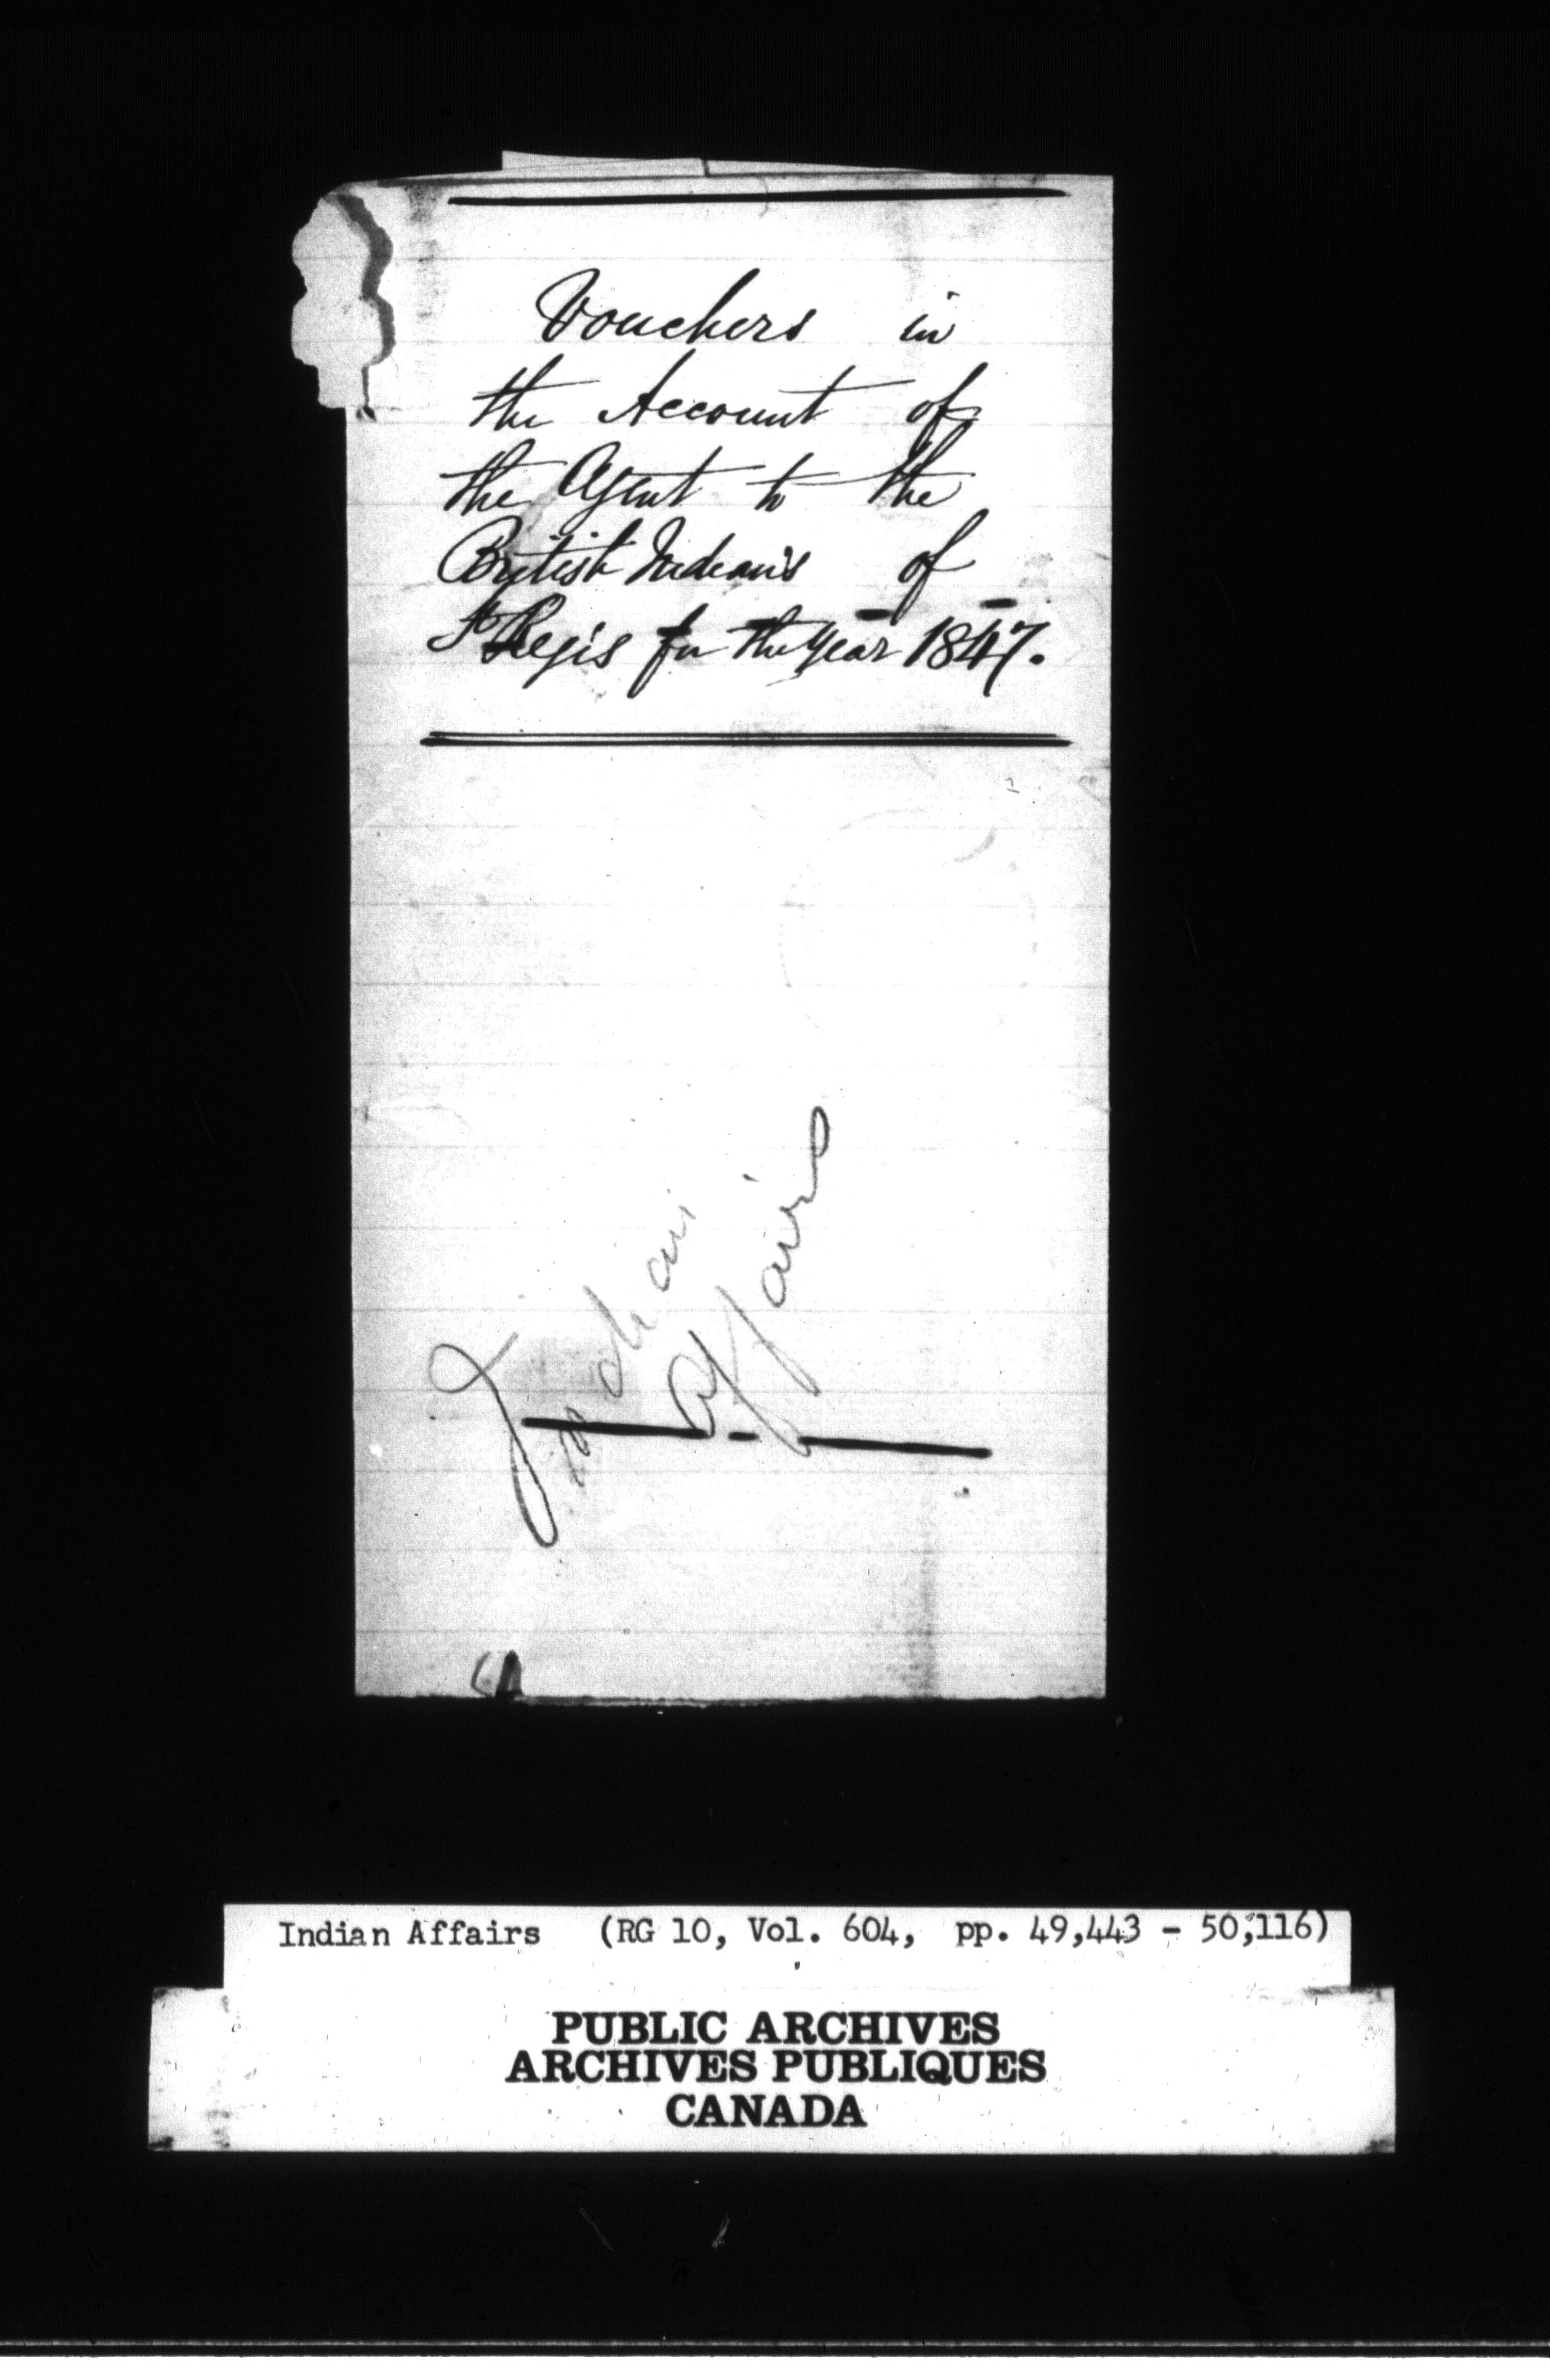 Vouchers in
the Account of
the Agent to the
British Indian's of
St Regis for the year 1847.
Indian
Affairs
Indian Affairs (RG 10, Vol. 604, pp. 49,443 - 50,116)
PUBLIC ARCHIVES
ARCHIVES PUBLIQUES
CANADA